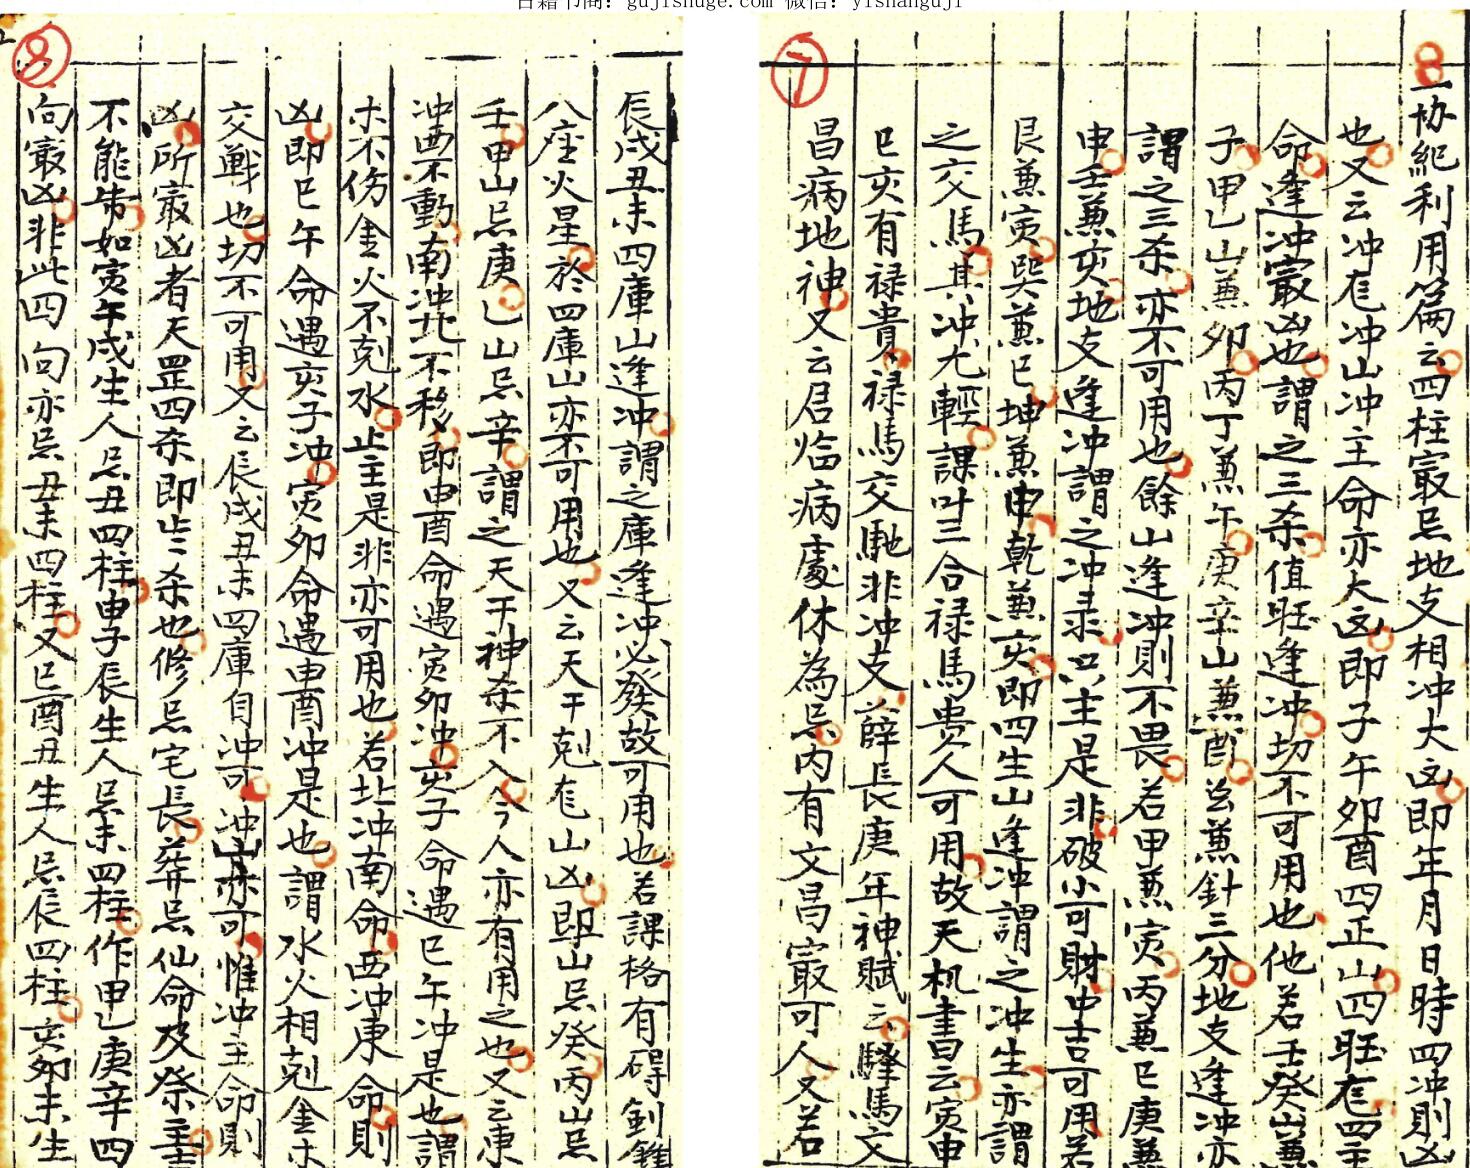 古籍书阁：gujishuge.com 微信：yishanguji
8
一协紀利用篇云四柱最忌地支相冲大凶即年月日時四冲則凶
也又云冲龙冲山冲主命亦大凶即子午卯酉四正山四旺龙四主
命逢冲最凶也謂之三杀值旺逢冲切不可用也他若壬癸山兼
子甲乙山兼卯丙丁兼午庚辛山兼酉並兼針三分地支逢冲亦
謂之三杀亦不可用也餘山逢冲則不畏若甲兼寅丙兼巳庚兼
申壬兼亥地支逢冲謂之冲录只主是非破小可財中吉可用若
艮兼寅巽兼巳坤兼申乾兼亥即四生山逢冲謂之冲生亦謂
之交馬其冲尤輕課叶三合禄馬貴人可用故天机書曰云寅申
巳亥有禄貴禄馬交馳非冲支薛長庚年神賦云驛馬文
昌病地神又云居临病處休為忌内有文昌最可人又若
7
辰戌丑未四庫山逢冲謂之庫逢冲必發故可用也若課格有碍剑鋒
八座火星於四庫山亦不可用也又云天干剋龙山凶即山忌癸丙山忌
壬甲山忌庚乙山忌辛謂之天干神杀不入今人亦有用之也又云東
冲西不動南冲北不移即申酉命遇寅卯冲亥子命遇巳午冲是也謂
木不伤金火不剋水止主是非亦可用也若北冲南命西冲東命則
凶即巳午命遇亥子冲寅卯命遇申酉冲是也謂水火相剋金木
交戰也切不可用又云辰戌丑未四庫自冲可冲山亦可惟冲主命則
凶所最凶者天罡四杀即占杀也修忌宅長葬忌仙命及祭主
不能带如寅午戌生人忌丑四柱申子辰生人忌未四柱作甲乙庚辛四
向最凶非此四向亦忌丑未四柱又巳酉丑生人忌辰四柱亥卯未生
8